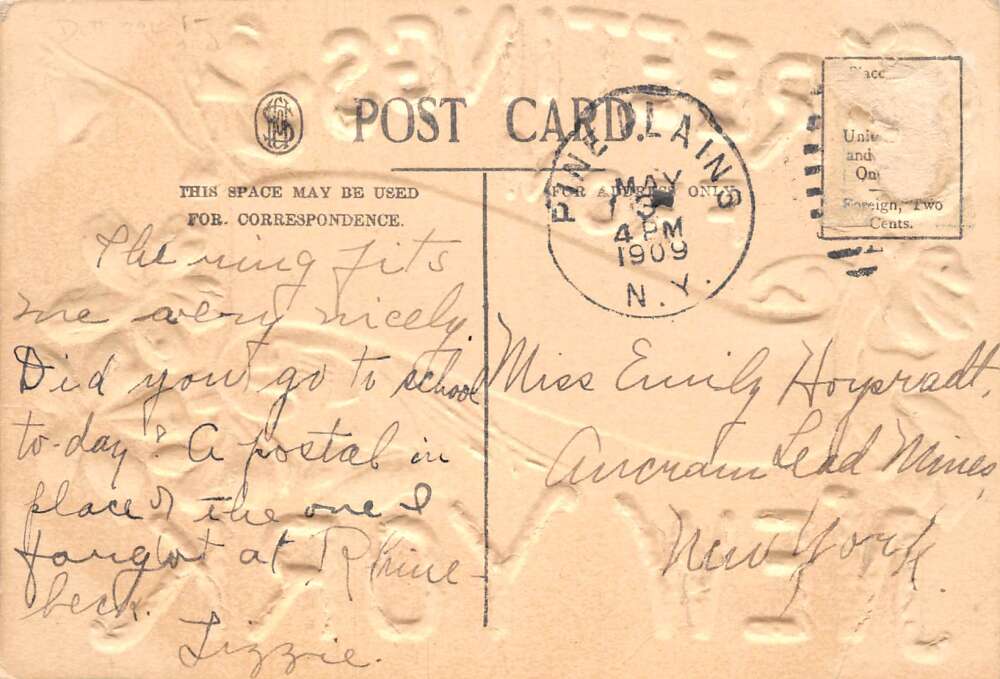 POST CARD.
THIS SPACE MAY BE USED
FOR CORRESPONDENCE.
FOR ADDRESS ONLY
PINE PLAINS
MAY
4 PM
1909
N.Y.
Place
and
Foreign, Two
Cents.
The ring fits
me very nicely.
Did you go to school
to-day? A postal in
place of the one I
forgot at Rhine-
beck.
Lizzie.
Miss Emily Hoysradt,
Ancram Lead Mines,
New York.
GREETINGS
FROM
NEW YORK